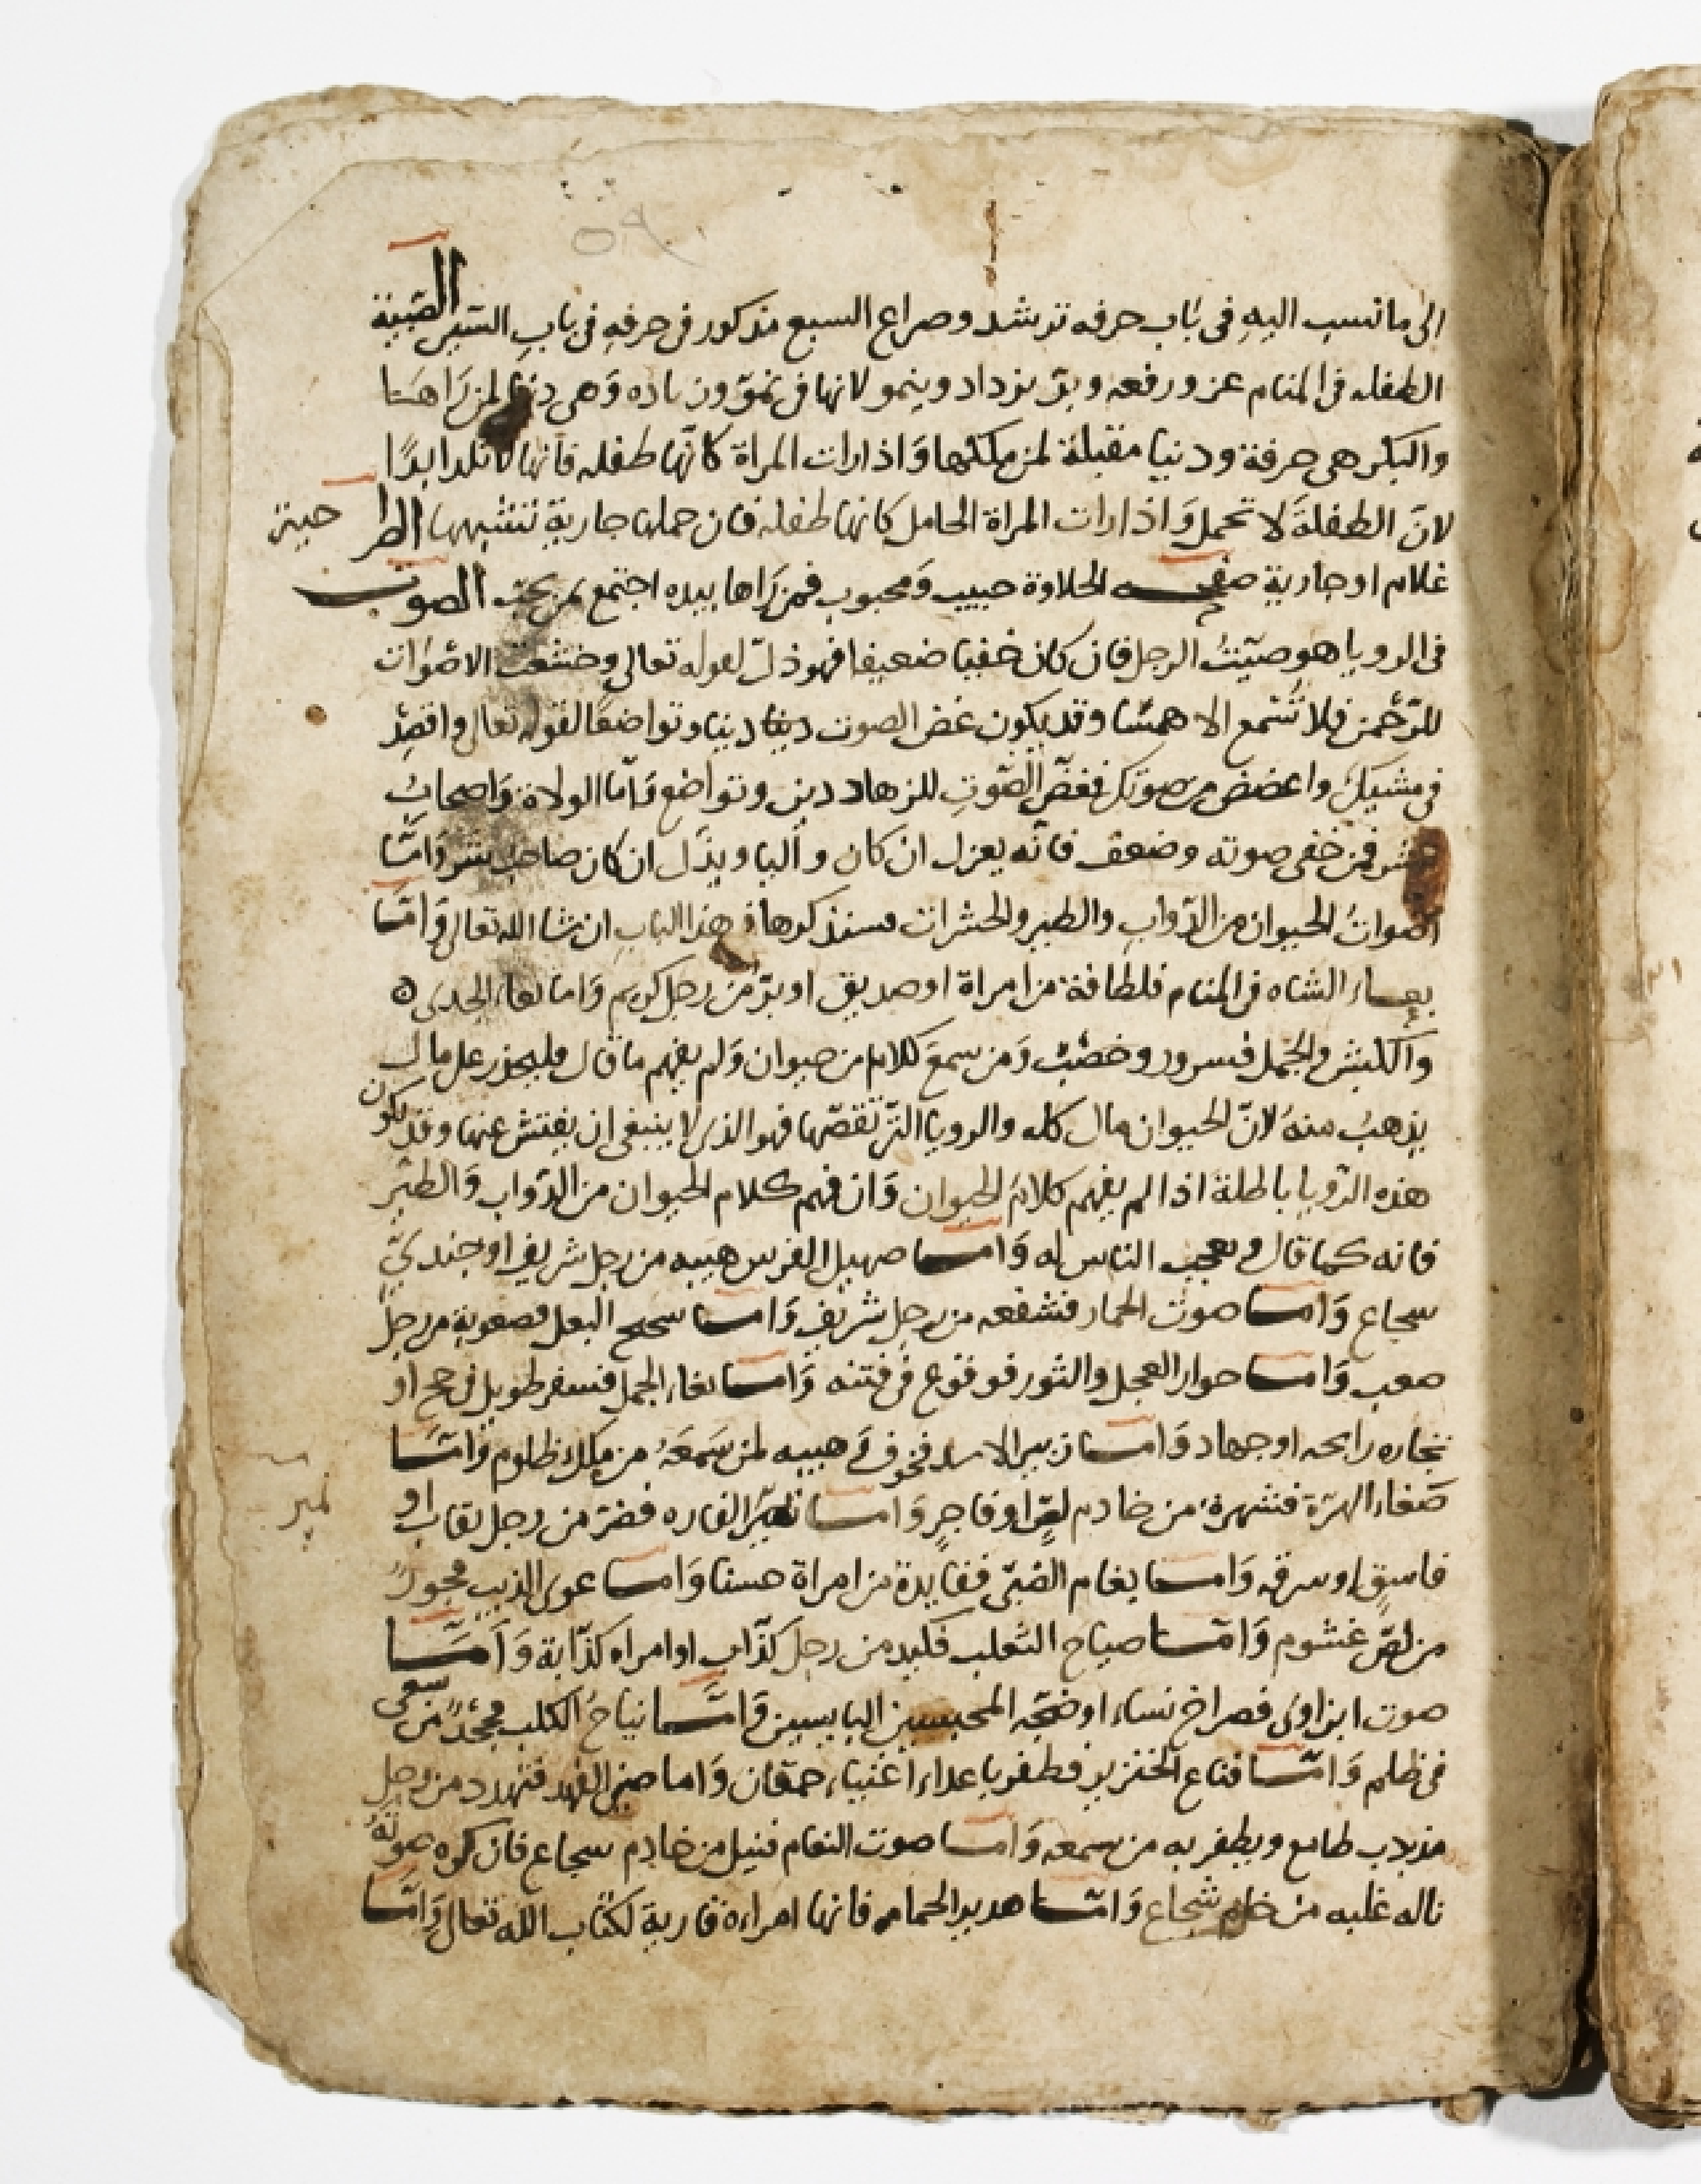 ٥٩
الى ما نسب اليه في باب حرفه ترشد وصراع السبع مذكور في حرفه في باب السير الصبية
الطفله في المنام عز ورفعه وبر يزداد وينمو لانها في نمو وزياده وهي دنيا لمن راها
والبكر هي حرفة ودنيا مقبلة لمن ملكها واذا رات المراة كانها طفله فانها لا تلد ابدا
لان الطفلة لا تحمل واذا رات المراة الحامل كانها طفله فان حملها جارية تشبهها
غلام او جارية الحلاوة حبيب ومحبوب فمن راها بيده اجتمع بمن يحب الصوت
في الرويا هو صيت الرجل فان كان خفيا ضعيفا فهو ذل لقوله تعالى وخشعت الاصوات
للرحمن فلا تسمع الا همسا وقد يكون غض الصوت دينا وتواضعا لقوله تعالى واقصد
في مشيك واغضض من صوتك فغض الصوت للزهاد دين وتواضع واما الولاة واصحاب
فمن خفى صوته وضعف فانه يعزل ان كان واليا ويذل ان كان صاحب شر واما
اصوات الحيوان من الدواب والطير والحشرات فسنذكرها في هذا الباب ان شا الله تعالى واما
يعار الشاه في المنام فلطافة من امراة او صديق او بر من رجل كريم واما الجدى
والكبش والحمل فسرور وخصب ومن سمع كلام من حيوان ولم يفهم ما قال فليحذر على مال
يذهب منه لان الحيوان مال كله والرويا التي تقصها فهو الذي لا ينبغي ان يفتش عنها وقد يكون
هذه الرويا باطلة اذا لم يفهم كلام الحيوان وان فهم كلام الحيوان من الدواب والطير
فانه كما قال ويعجب الناس له واما صهيل الفرس هيبه من رجل شريف او جندي
سجاع واما صوت الحمار فشفعه من رجل شريف واما سحيح البغل فصعوبة من رجل
صعب واما حوار العجل والثور فوقوع في فتنه واما بغاء الجمل فسفر طويل في حج او
تجاره رابحه او جهاد واما زيير الاسد فخوف وهيبه لمن سمعه من ملك ظلوم واما
ضغاء الهرة فشهرة من خادم لص او فاجر واما الفاره فضر من رجل نقاب او
فاسق او سرقه واما بغام الضبي ففايدة من امراة حسنا واما عوى الذيب فجور
من لص غشوم واما صياح الثعلب فكيد من رجل كذاب او امراه كذابة واما
صوت ابن اوى فصراخ نساء او ضجه المحبسين اليايسين واما نباح الكلب من سعى
في ظلم واما قناع الخنزير فظفر باعداء اغنياء حمقان واما الفهد فتهدد من رجل
مذبدب طامع ويظفر به من سمعه واما صوت النعام فنيل من خادم سجاع فان كره صوته
ناله غلبه من خادم شجاع واما هدير الحمام فانها امراه قارية لكتاب الله تعالى واما